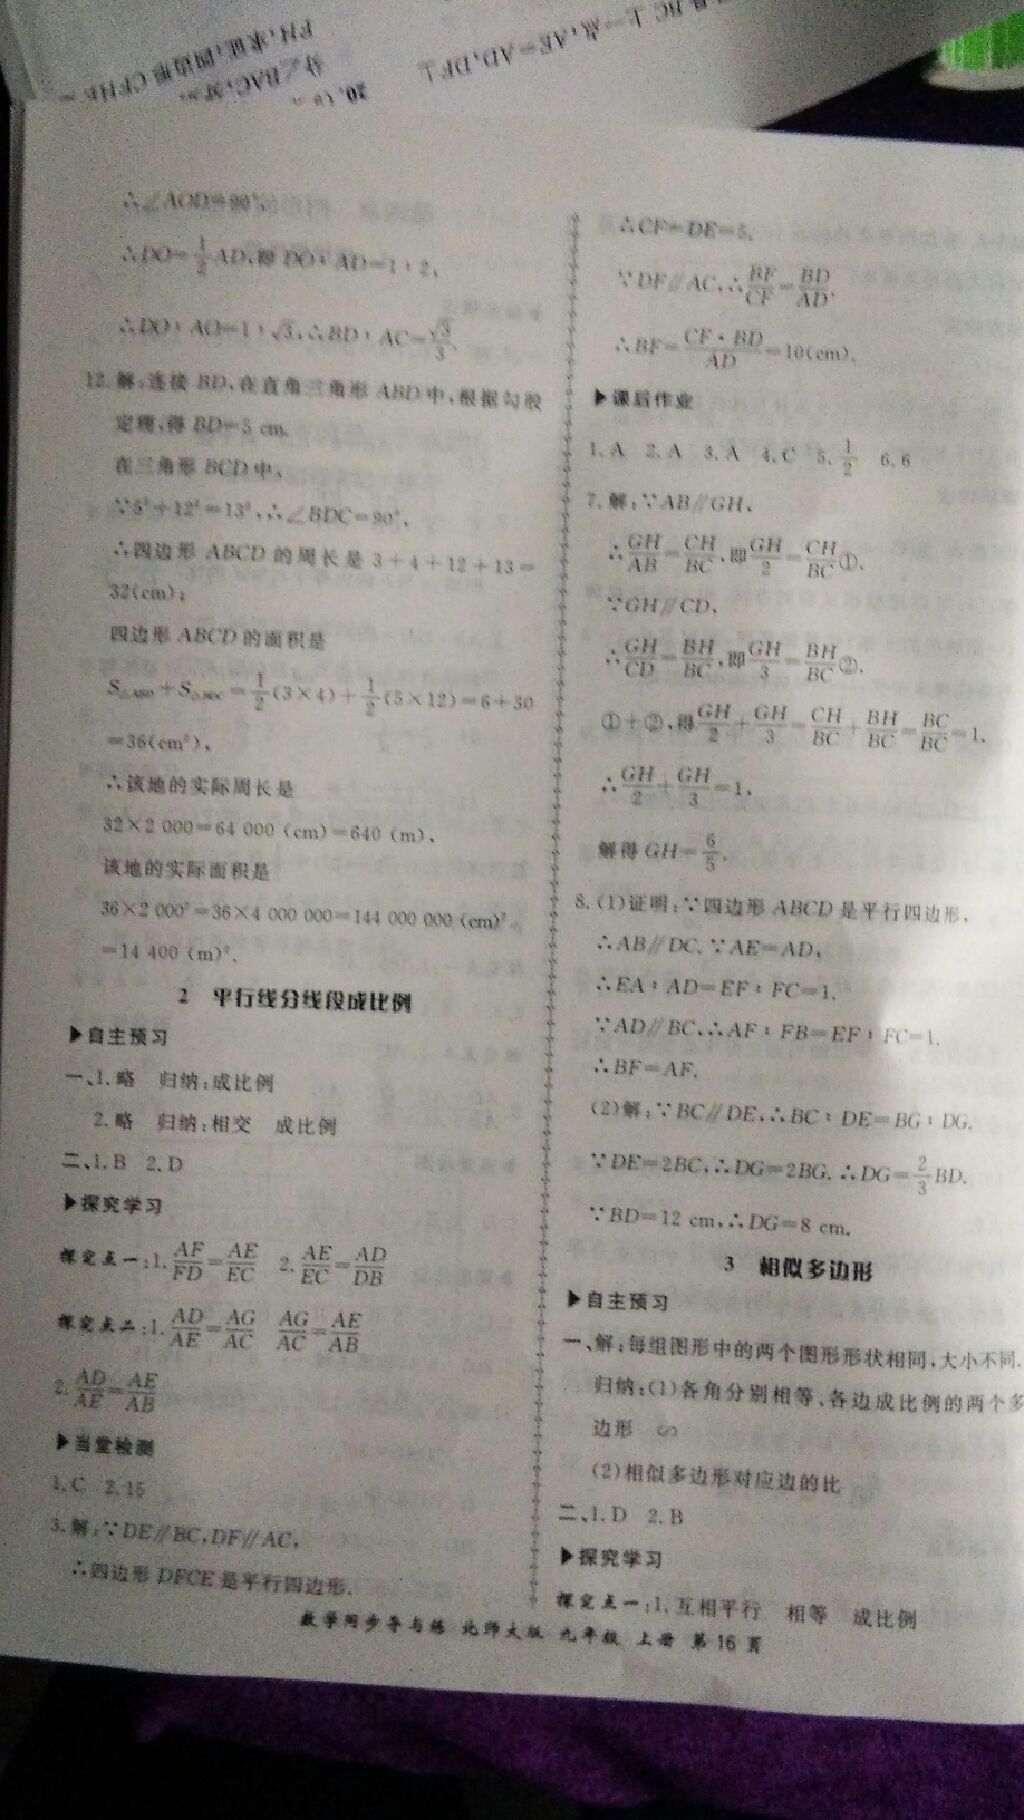 ∴∠AOD=90°.
∴DO=1/2AD,即 DO:AD=1:2,
∴DO:AO=1:√3,∴BD:AC=√3/3.
12.解:连接 BD,在直角三角形 ABD 中,根据勾股
定理,得 BD=5 cm.
在三角形 BCD 中,
∵5²+12²=13²,∴∠BDC=90°.
∴四边形 ABCD 的周长是 3+4+12+13=
32(cm);
四边形 ABCD 的面积是
S△ABD+S△BDC=1/2(3×4)+1/2(5×12)=6+30
=36(cm²).
∴该地的实际周长是
32×2 000=64 000 (cm)=640 (m),
该地的实际面积是
36×2 000²=36×4 000 000=144 000 000 (cm)²
=14 400 (m)².
2 平行线分线段成比例
▶自主预习
一、1.略 归纳:成比例
2.略 归纳:相交 成比例
二、1.B 2.D
▶探究学习
探究点一:1.AF/FD=AE/EC 2.AE/EC=AD/DB
探究点二:1.AD/AE=AG/AC AG/AC=AE/AB
2.AD/AE=AE/AB
▶当堂检测
1.C 2.15
3.解:∵DE∥BC,DF∥AC,
∴四边形 DFCE 是平行四边形.
∴CF=DE=5.
∵DF∥AC,∴BF/CF=BD/AD.
∴BF=CF·BD/AD=10(cm).
▶课后作业
1.A 2.A 3.A 4.C 5.1/2 6.6
7.解:∵AB∥GH,
∴GH/AB=CH/BC,即GH/2=CH/BC①.
∵GH∥CD,
∴GH/CD=BH/BC,即GH/3=BH/BC②.
①+②,得GH/2+GH/3=CH/BC+BH/BC=BC/BC=1.
∴GH/2+GH/3=1,
解得 GH=6/5.
8.(1)证明:∵四边形 ABCD 是平行四边形,
∴AB∥DC.∵AE=AD,
∴EA:AD=EF:FC=1.
∵AD∥BC,∴AF:FB=EF:FC=1.
∴BF=AF.
(2)解:∵BC∥DE,∴BC:DE=BG:DG.
∵DE=2BC,∴DG=2BG.∴DG=2/3BD.
∵BD=12 cm,∴DG=8 cm.
3 相似多边形
▶自主预习
一、解:每组图形中的两个图形形状相同,大小不同.
归纳:(1)各角分别相等、各边成比例的两个多
边形 ∽
(2)相似多边形对应边的比
二、1.D 2.B
▶探究学习
探究点一:1.互相平行 相等 成比例
数学同步导与练 北师大版 九年级 上册 第16页